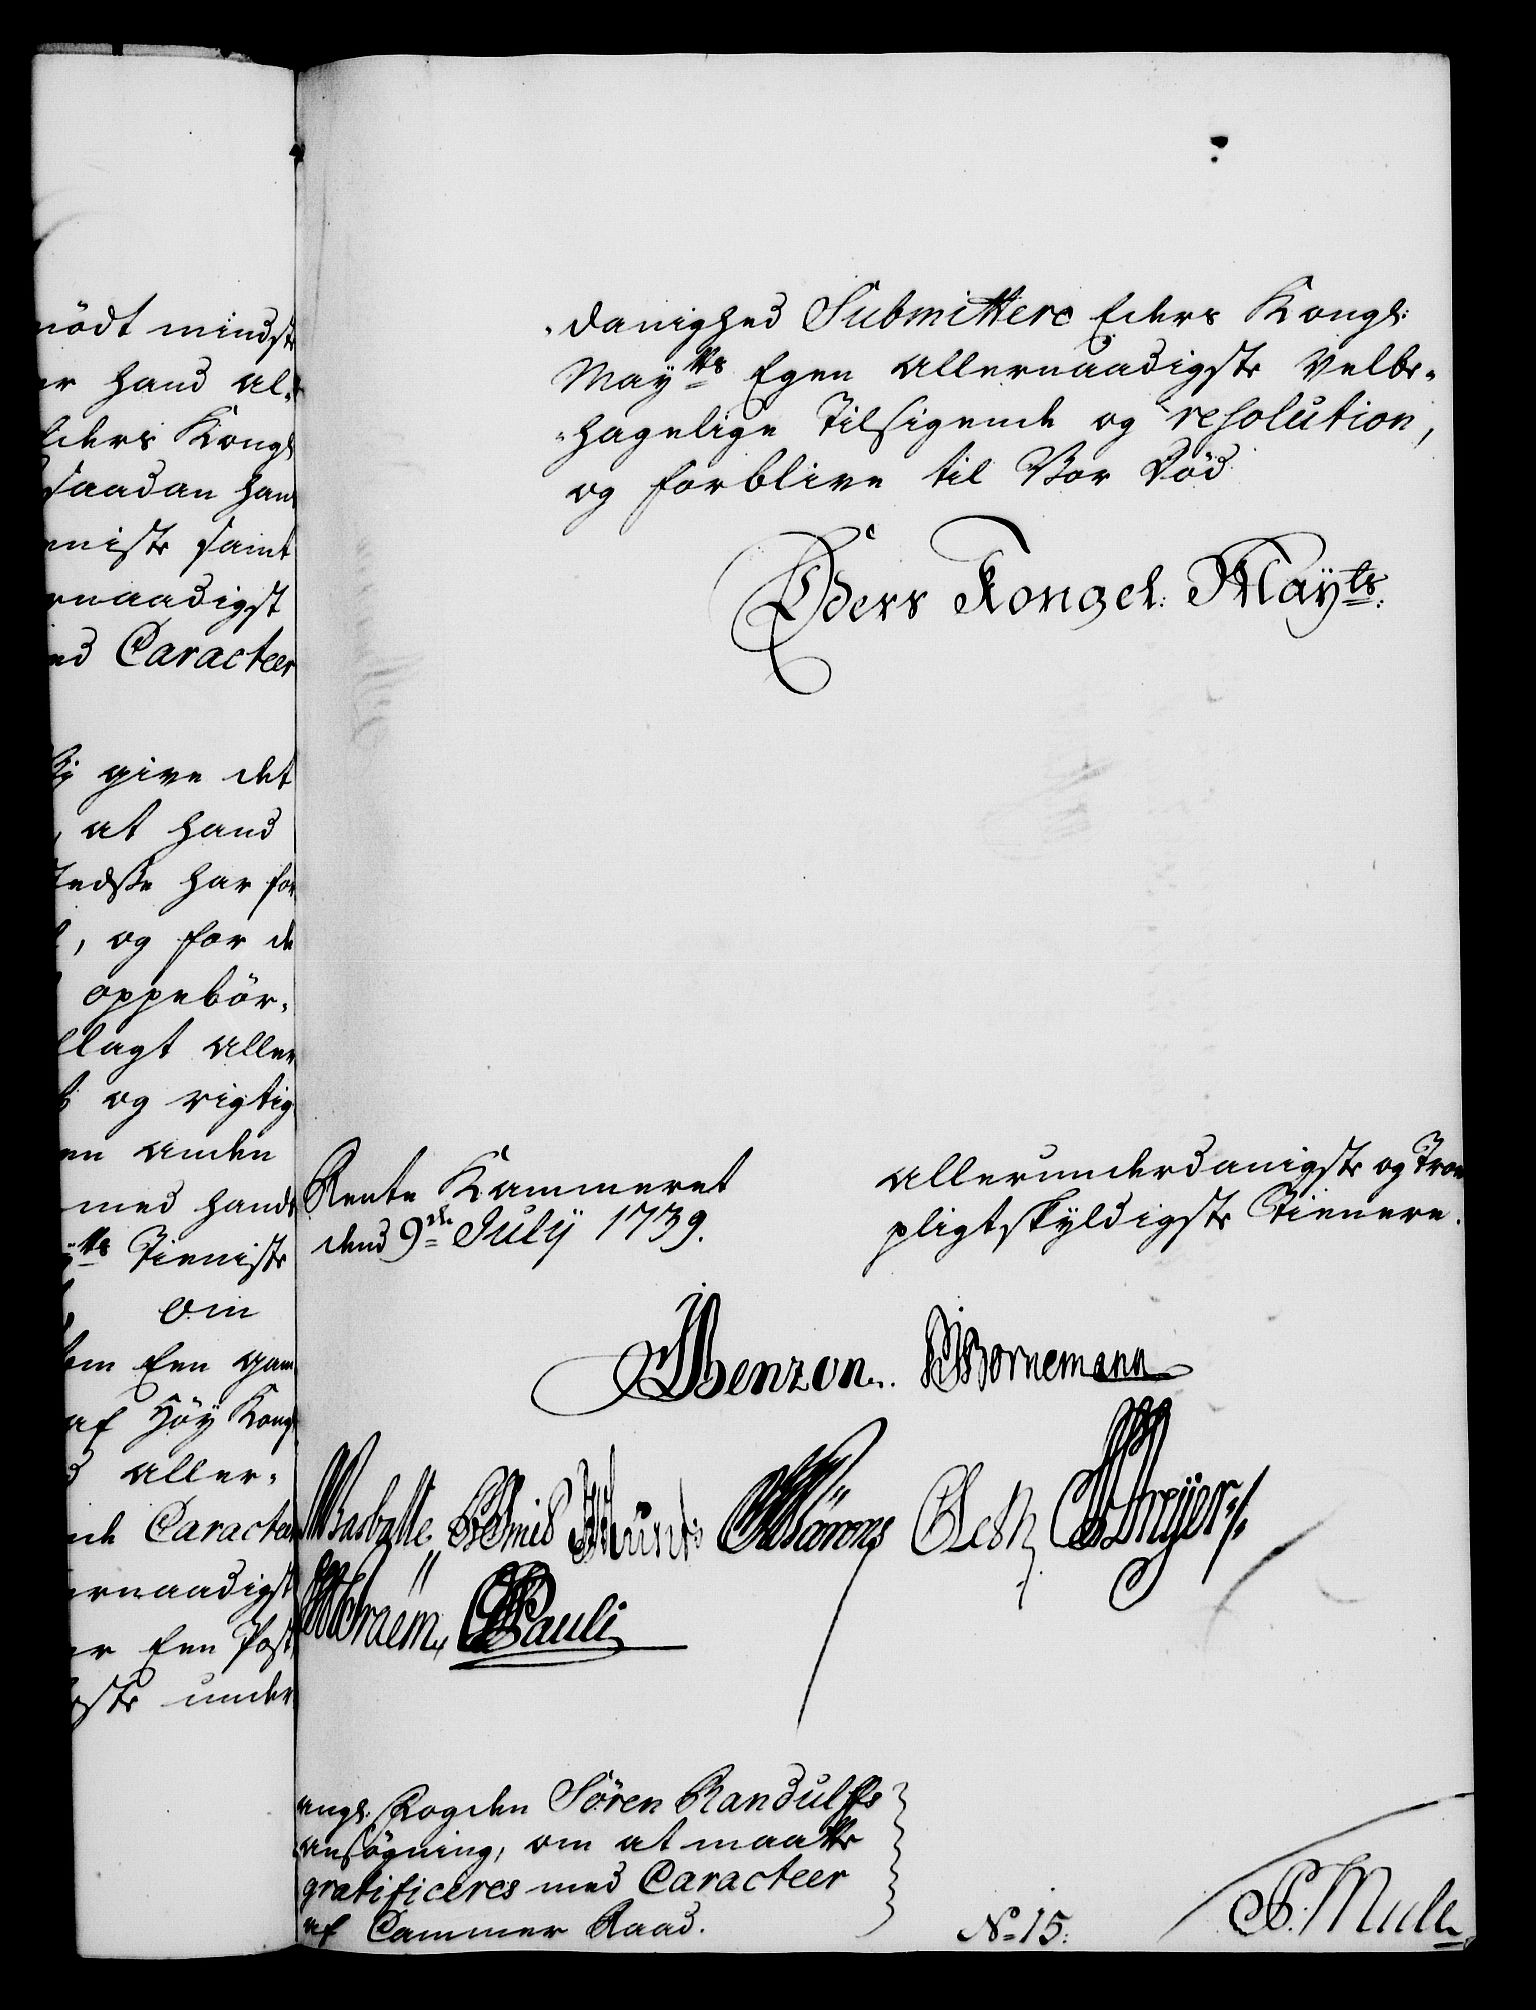 nödt mindst
er hand al-
Eders Kongl
saadan han
eniste samt
ernaadigst
ed Caracteer
give det
, at hand
Tedsse har for
, og for de
oppebör-
llagt aller
og rigtig
en anden
med hands
yts Tieniste
om
som Een gam
af Höy Kong
d aller-
nde Caracteer
ernaadigst
er Een Post
gste under
-danighed Submittere Eders Kongl:
Mayts Egen allernaadigste Velbe-
-hagelige Tilsigende og resolution,
og forblive til Vor Död
Eders Kongel: Mayts:
Rente Kammeret
dend 9de Julÿ 1739.
allerunderdanigste og Troe
pligtskyldigste Tienere.
Benzon. Bornemann
Basballe Selmer
Pauli
angl. Fogden Sören Randulffs
ansögning, om at maatte
gratificeres med Caracteer
af Cammer Raad.
No 15.
P. Mule